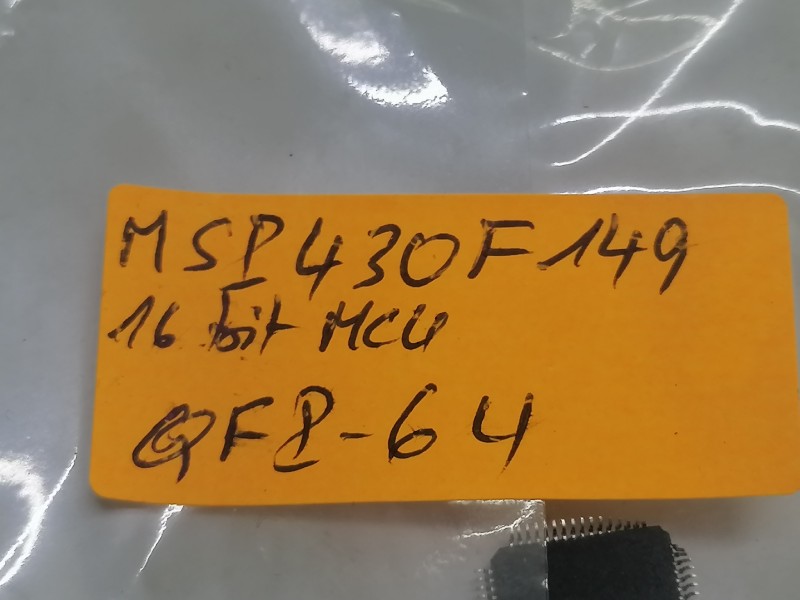 MSP430F149
16 bit MCU
QFP-64